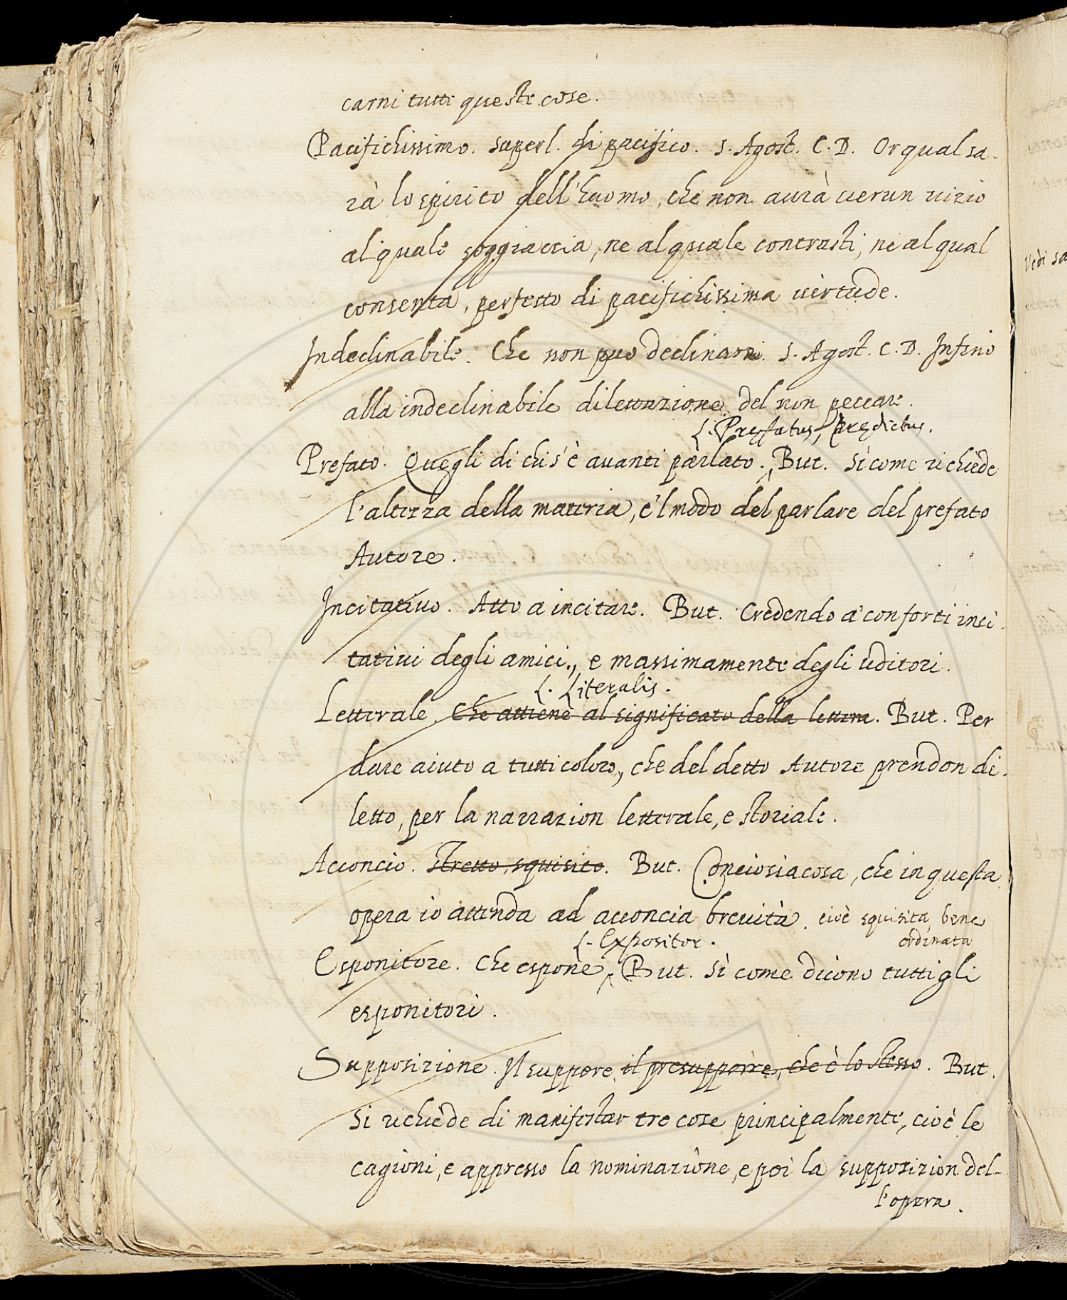 carni tutte queste cose.
Pacifichissimo. superl. di pacifico. S. Agost. C. D. Or qual sa-
rà lo spirito dell'huomo, che non aurà uerun uizio
al quale soggiaccia, ne al quale contrasti, ne al qual
consenta, perfetto di pacifichissima uertude.
Indeclinabile. Che non puo declinare. S. Agost. C. D. Infino
alla indeclinabile dilettazione del non peccare.
L. Prefatus, Predictus.
Prefato. Quegli di chi s'è auanti parlato. But. Sì come richiede
l'altezza della materia, e'l modo del parlare del prefato
Autore.
Incitatiuo. Atto a incitare. But. Credendo a' conforti inci-
tatiui degli amici, e massimamente degli uditori.
L. Literalis.
Letterale, che attiene al significato della lettera. But. Per
dare aiuto a tutti coloro, che del detto Autore prendon di-
letto, per la narrazion letterale, e storiale.
Acconcio. Stretto, squisito. But. Conciosiacosa, che in questa
opera io attenda ad acconcia breuità. cioè squisita, bene
ordinata
L. Expositor.
Esponitore. Che espone, But. Sì come dicono tutti gli
espositori.
Supposizione. Il supporre, il presupporre, che è lo stesso. But.
Si richiede di manifestar tre cose principalmente, cioè le
cagioni, e appresso la nominazione, e poi la supposizion del-
l'opera.
Vedi sa